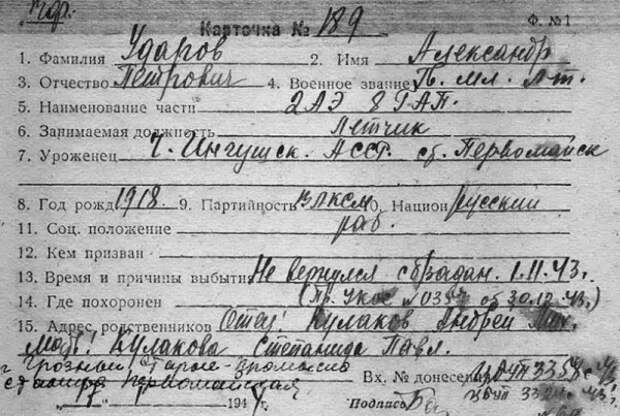 Карточка № 189 Ф. №1
1. Фамилия Ударов 2. Имя Александр
3. Отчество Петрович 4. Военное звание Гв. мл. л-т.
5. Наименование части 2АЭ 8 ГАП.
6. Занимаемая должность Летчик
7. Уроженец Ч. Ингушск. Асст. ст. Первомайск
8. Год рожд 1918. 9. Партийность ВЛКСМ 10. Национ Русский
11. Соц. положение раб.
12. Кем призван
13. Время и причины выбыти Не вернулся с б/задан. 1.11.43г.
14. Где похоронен (Пр. УКОС №0357 от 30.12.43г.)
15. Адрес родственников Отец: Кулаков Андрей Мих.
мать: Кулакова Степанида Павл.
г Грозный, Старые-промысла
станица Первомайская Вх. № донесен
194 г. Подпись